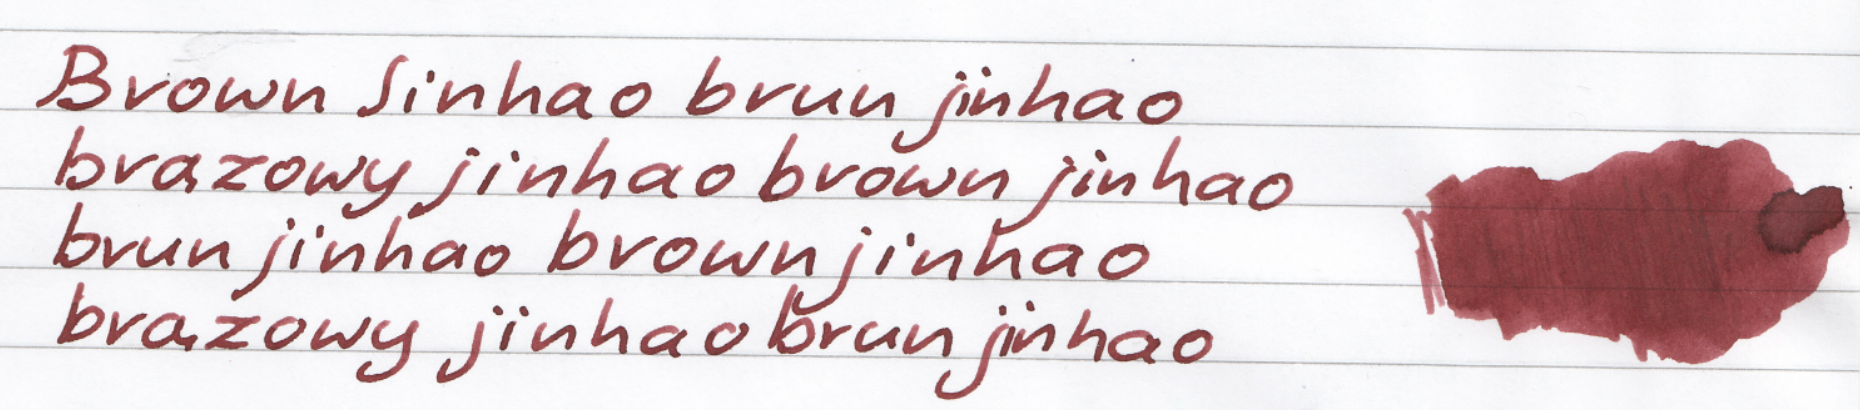 Brown Jinhao brun jinhao
brązowy jinhao brown jinhao
brun jinhao brown jinhao
brązowy jinhao brun jinhao